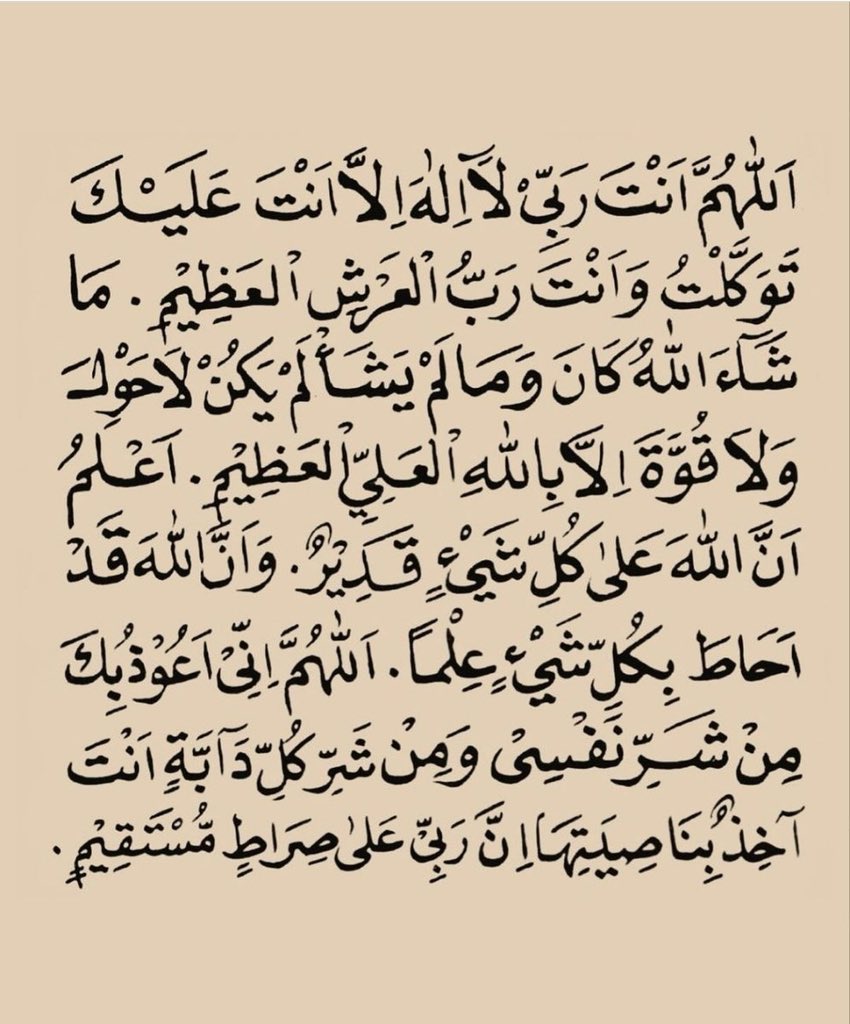 اَللّٰهُمَّ اَنْتَ رَبِّيْ لَآ اِلٰهَ اِلَّا اَنْتَ عَلَيْكَ
تَوَكَّلْتُ وَاَنْتَ رَبُّ الْعَرْشِ الْعَظِيْمِ. مَا
شَآءَ اللّٰهُ كَانَ وَمَا لَمْ يَشَأْ لَمْ يَكُنْ لَا حَوْلَ
وَلَا قُوَّةَ اِلَّا بِاللّٰهِ الْعَلِيِّ الْعَظِيْمِ. اَعْلَمُ
اَنَّ اللّٰهَ عَلٰى كُلِّ شَيْءٍ قَدِيْرٌ. وَاَنَّ اللّٰهَ قَدْ
اَحَاطَ بِكُلِّ شَيْءٍ عِلْمًا. اَللّٰهُمَّ اِنِّيْ اَعُوْذُبِكَ
مِنْ شَرِّ نَفْسِيْ وَمِنْ شَرِّ كُلِّ دَآبَّةٍ اَنْتَ
آخِذٌ بِنَاصِيَتِهَا اِنَّ رَبِّيْ عَلٰى صِرَاطٍ مُّسْتَقِيْمٍ.